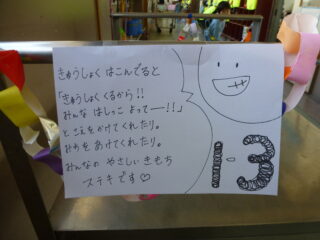 きゅうしょく はこんでると
「きゅうしょく くるから!!
みんな はしっこ よってー!!」
と こえをかけてくれたり。
ドアをあけてくれたり。
みんなの やさしい きもち
ステキです♡
1-3